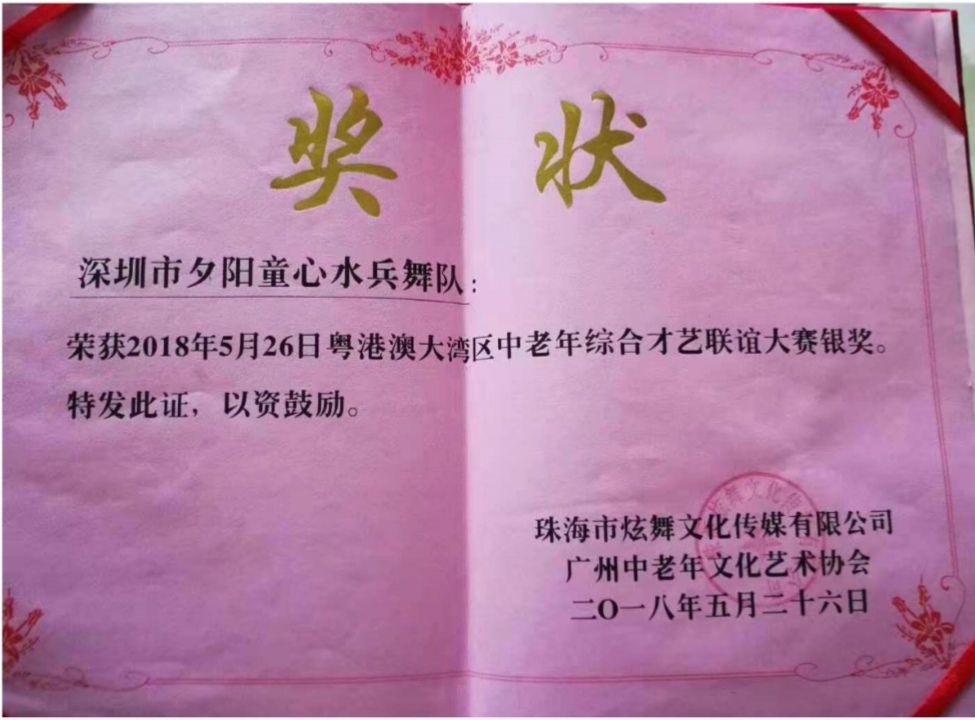 奖 状
深圳市夕阳童心水兵舞队：
荣获2018年5月26日粤港澳大湾区中老年综合才艺联谊大赛银奖。
特发此证，以资鼓励。
珠海市炫舞文化传媒有限公司
广州中老年文化艺术协会
二〇一八年五月二十六日
炫舞文化传